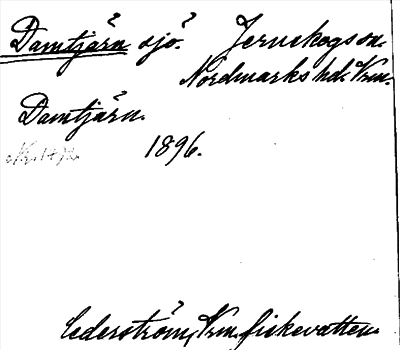 Damtjärn sjö. Jernskogs sn.
Nordmarks hd. Vrm.
Damtjärn.
1896.
Cederström, Vrm. fiskevatten